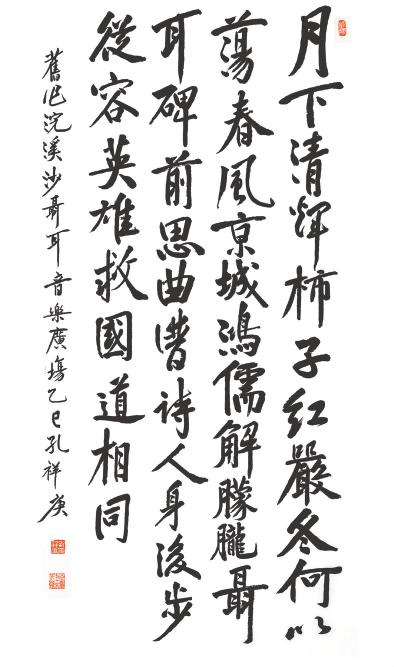 月下清輝柿子紅嚴冬何以
蕩春風京城鴻儒解朦朧聶
耳碑前思曲譜詩人身後步
從容英雄救國道相同
舊作浣溪沙聶耳音樂廣場乙巳孔祥庚